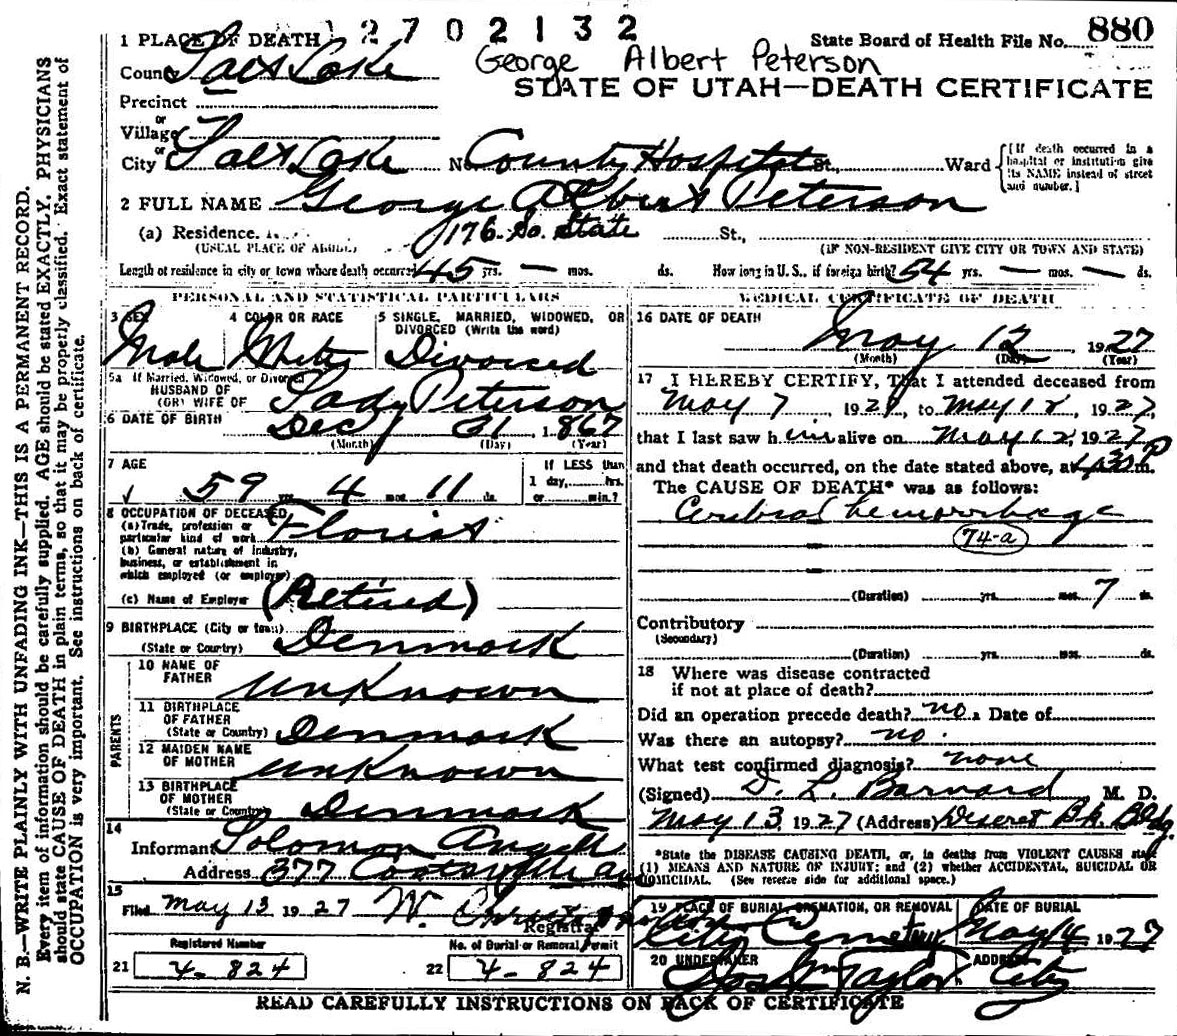 1 2 7 0 2 1 3 2
State Board of Health File No. 880
George Albert Peterson
STATE OF UTAH—DEATH CERTIFICATE
1 PLACE OF DEATH
County Salt Lake
Precinct
or
Village
or
City Salt Lake No. County Hospital St., Ward
[If death occurred in a hospital or institution give its NAME instead of street and number.]
2 FULL NAME George Albert Peterson
(a) Residence. No. 176 So. State St.,
(USUAL PLACE OF ABODE) (IF NON-RESIDENT GIVE CITY OR TOWN AND STATE)
Length of residence in city or town where death occurred 45 yrs. — mos. ds. How long in U. S., if foreign birth? 54 yrs. — mos. — ds.
PERSONAL AND STATISTICAL PARTICULARS
3 SEX
Male
4 COLOR OR RACE
White
5 SINGLE, MARRIED, WIDOWED, OR DIVORCED (Write the word)
Divorced
5a If Married, Widowed, or Divorced
HUSBAND OF
(OR) WIFE OF Peterson
6 DATE OF BIRTH Dec 31, 1867
(Month) (Day) (Year)
7 AGE
59 yrs. 4 mos. 11 ds.
If LESS than
1 day, hrs.
or min.?
8 OCCUPATION OF DECEASED
(a) Trade, profession or
particular kind of work Florist
(b) General nature of industry,
business, or establishment in
which employed (or employer)
(c) Name of Employer (Retired)
9 BIRTHPLACE (City or town)
(State or Country) Denmark
PARENTS
10 NAME OF
FATHER Unknown
11 BIRTHPLACE
OF FATHER
(State or Country) Denmark
12 MAIDEN NAME
OF MOTHER Unknown
13 BIRTHPLACE
OF MOTHER
(State or Country) Denmark
14
Informant Solomon Angell
Address 377
15
Filed May 13 1927 W.
Registrar
Registered Number
21 4-824
No. of Burial or Removal Permit
22 4-824
MEDICAL CERTIFICATE OF DEATH
16 DATE OF DEATH
May 12 1927
(Month) (Day) (Year)
17 I HEREBY CERTIFY, That I attended deceased from
May 7, 1927, to May 12, 1927,
that I last saw him alive on May 12, 1927
and that death occurred, on the date stated above, at P m.
The CAUSE OF DEATH* was as follows:
Cerebral hemorrhage
74-a
(Duration) yrs. mos. 7 ds.
Contributory
(Secondary)
(Duration) yrs. mos. ds.
18 Where was disease contracted
if not at place of death?
Did an operation precede death? no Date of
Was there an autopsy? no.
What test confirmed diagnosis? none
(Signed) D. L. Barnard, M. D.
May 13, 1927 (Address) Deseret Bk. Bldg.
*State the DISEASE CAUSING DEATH, or, in deaths from VIOLENT CAUSES state
(1) MEANS AND NATURE OF INJURY; and (2) whether ACCIDENTAL, SUICIDAL OR
HOMICIDAL. (See reverse side for additional space.)
19 PLACE OF BURIAL, CREMATION, OR REMOVAL
City Cemetery
DATE OF BURIAL
May 14 1927
20 UNDERTAKER
Jos Wm Taylor
ADDRESS
City
READ CAREFULLY INSTRUCTIONS ON BACK OF CERTIFICATE
N. B.—WRITE PLAINLY WITH UNFADING INK—THIS IS A PERMANENT RECORD.
Every item of information should be carefully supplied. AGE should be stated EXACTLY. PHYSICIANS
should state CAUSE OF DEATH in plain terms, so that it may be properly classified. Exact statement of
OCCUPATION is very important. See instructions on back of certificate.